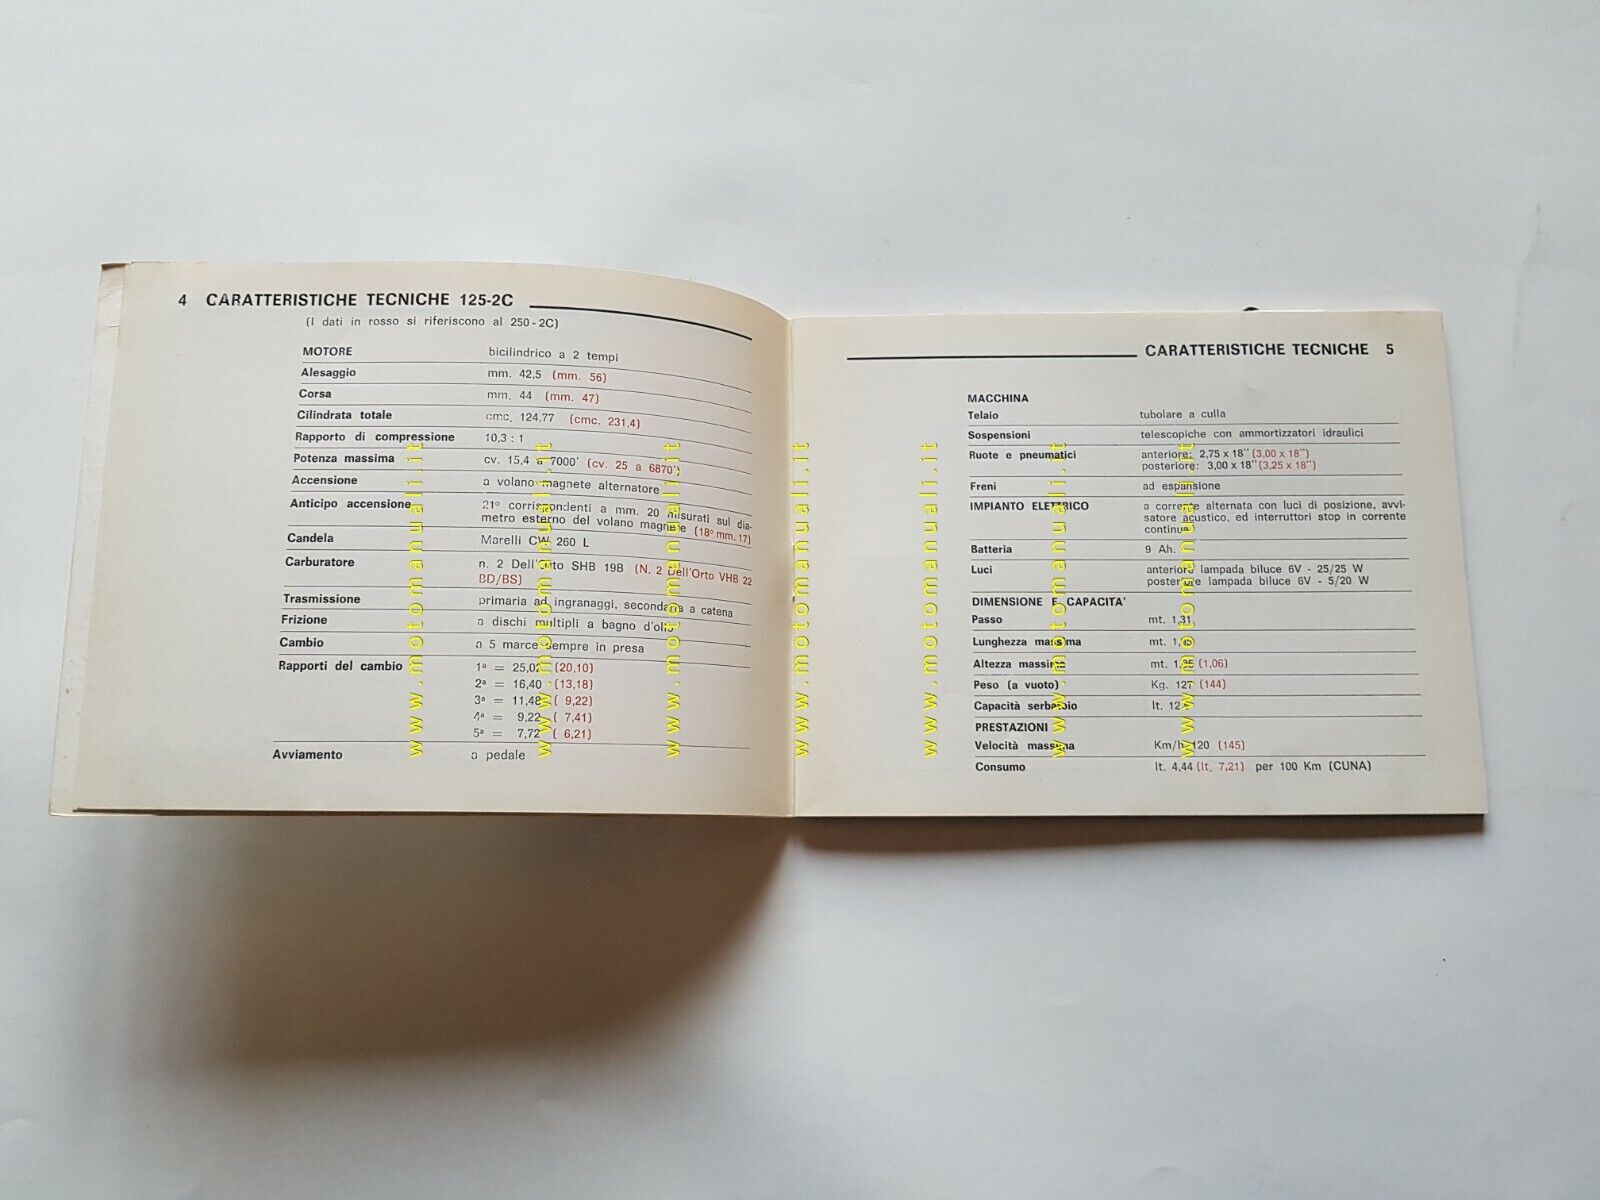 4 CARATTERISTICHE TECNICHE 125-2C
(I dati in rosso si riferiscono al 250-2C)
MOTORE bicilindrico a 2 tempi
Alesaggio mm. 42,5 (mm. 56)
Corsa mm. 44 (mm. 47)
Cilindrata totale cmc. 124,77 (cmc. 231,4)
Rapporto di compressione 10,3 : 1
Potenza massima cv. 15,4 a 7000' (cv. 25 a 6870')
Accensione a volano magnete alternatore
Anticipo accensione 21° corrispondenti a mm. 20 misurati sul dia-
metro esterno del volano magnete (18° mm. 17)
Candela Marelli CW 260 L
Carburatore n. 2 Dell'Orto SHB 19B (N. 2 Dell'Orto VHB 22
BD/BS)
Trasmissione primaria ad ingranaggi, secondaria a catena
Frizione a dischi multipli a bagno d'olio
Cambio a 5 marce sempre in presa
Rapporti del cambio 1ª = 25,02 (20,10)
2ª = 16,40 (13,18)
3ª = 11,48 ( 9,22)
4ª = 9,22 ( 7,41)
5ª = 7,72 ( 6,21)
Avviamento a pedale
CARATTERISTICHE TECNICHE 5
MACCHINA
Telaio tubolare a culla
Sospensioni telescopiche con ammortizzatori idraulici
Ruote e pneumatici anteriore: 2,75 x 18" (3,00 x 18")
posteriore: 3,00 x 18" (3,25 x 18")
Freni ad espansione
IMPIANTO ELETTRICO a corrente alternata con luci di posizione, avvi-
satore acustico, ed interruttori stop in corrente
continua
Batteria 9 Ah.
Luci anteriore lampada biluce 6V - 25/25 W
posteriore lampada biluce 6V - 5/20 W
DIMENSIONE E CAPACITA'
Passo mt. 1,31
Lunghezza massima mt.
Altezza massima mt. (1,06)
Peso (a vuoto) Kg. 127 (144)
Capacità serbatoio lt. 12
PRESTAZIONI
Velocità massima Km/h 120 (145)
Consumo lt. 4,44 (lt. 7,21) per 100 Km (CUNA)
www.motomanuali.it
www.motomanuali.it
www.motomanuali.it
www.motomanuali.it
www.motomanuali.it
www.motomanuali.it
www.motomanuali.it